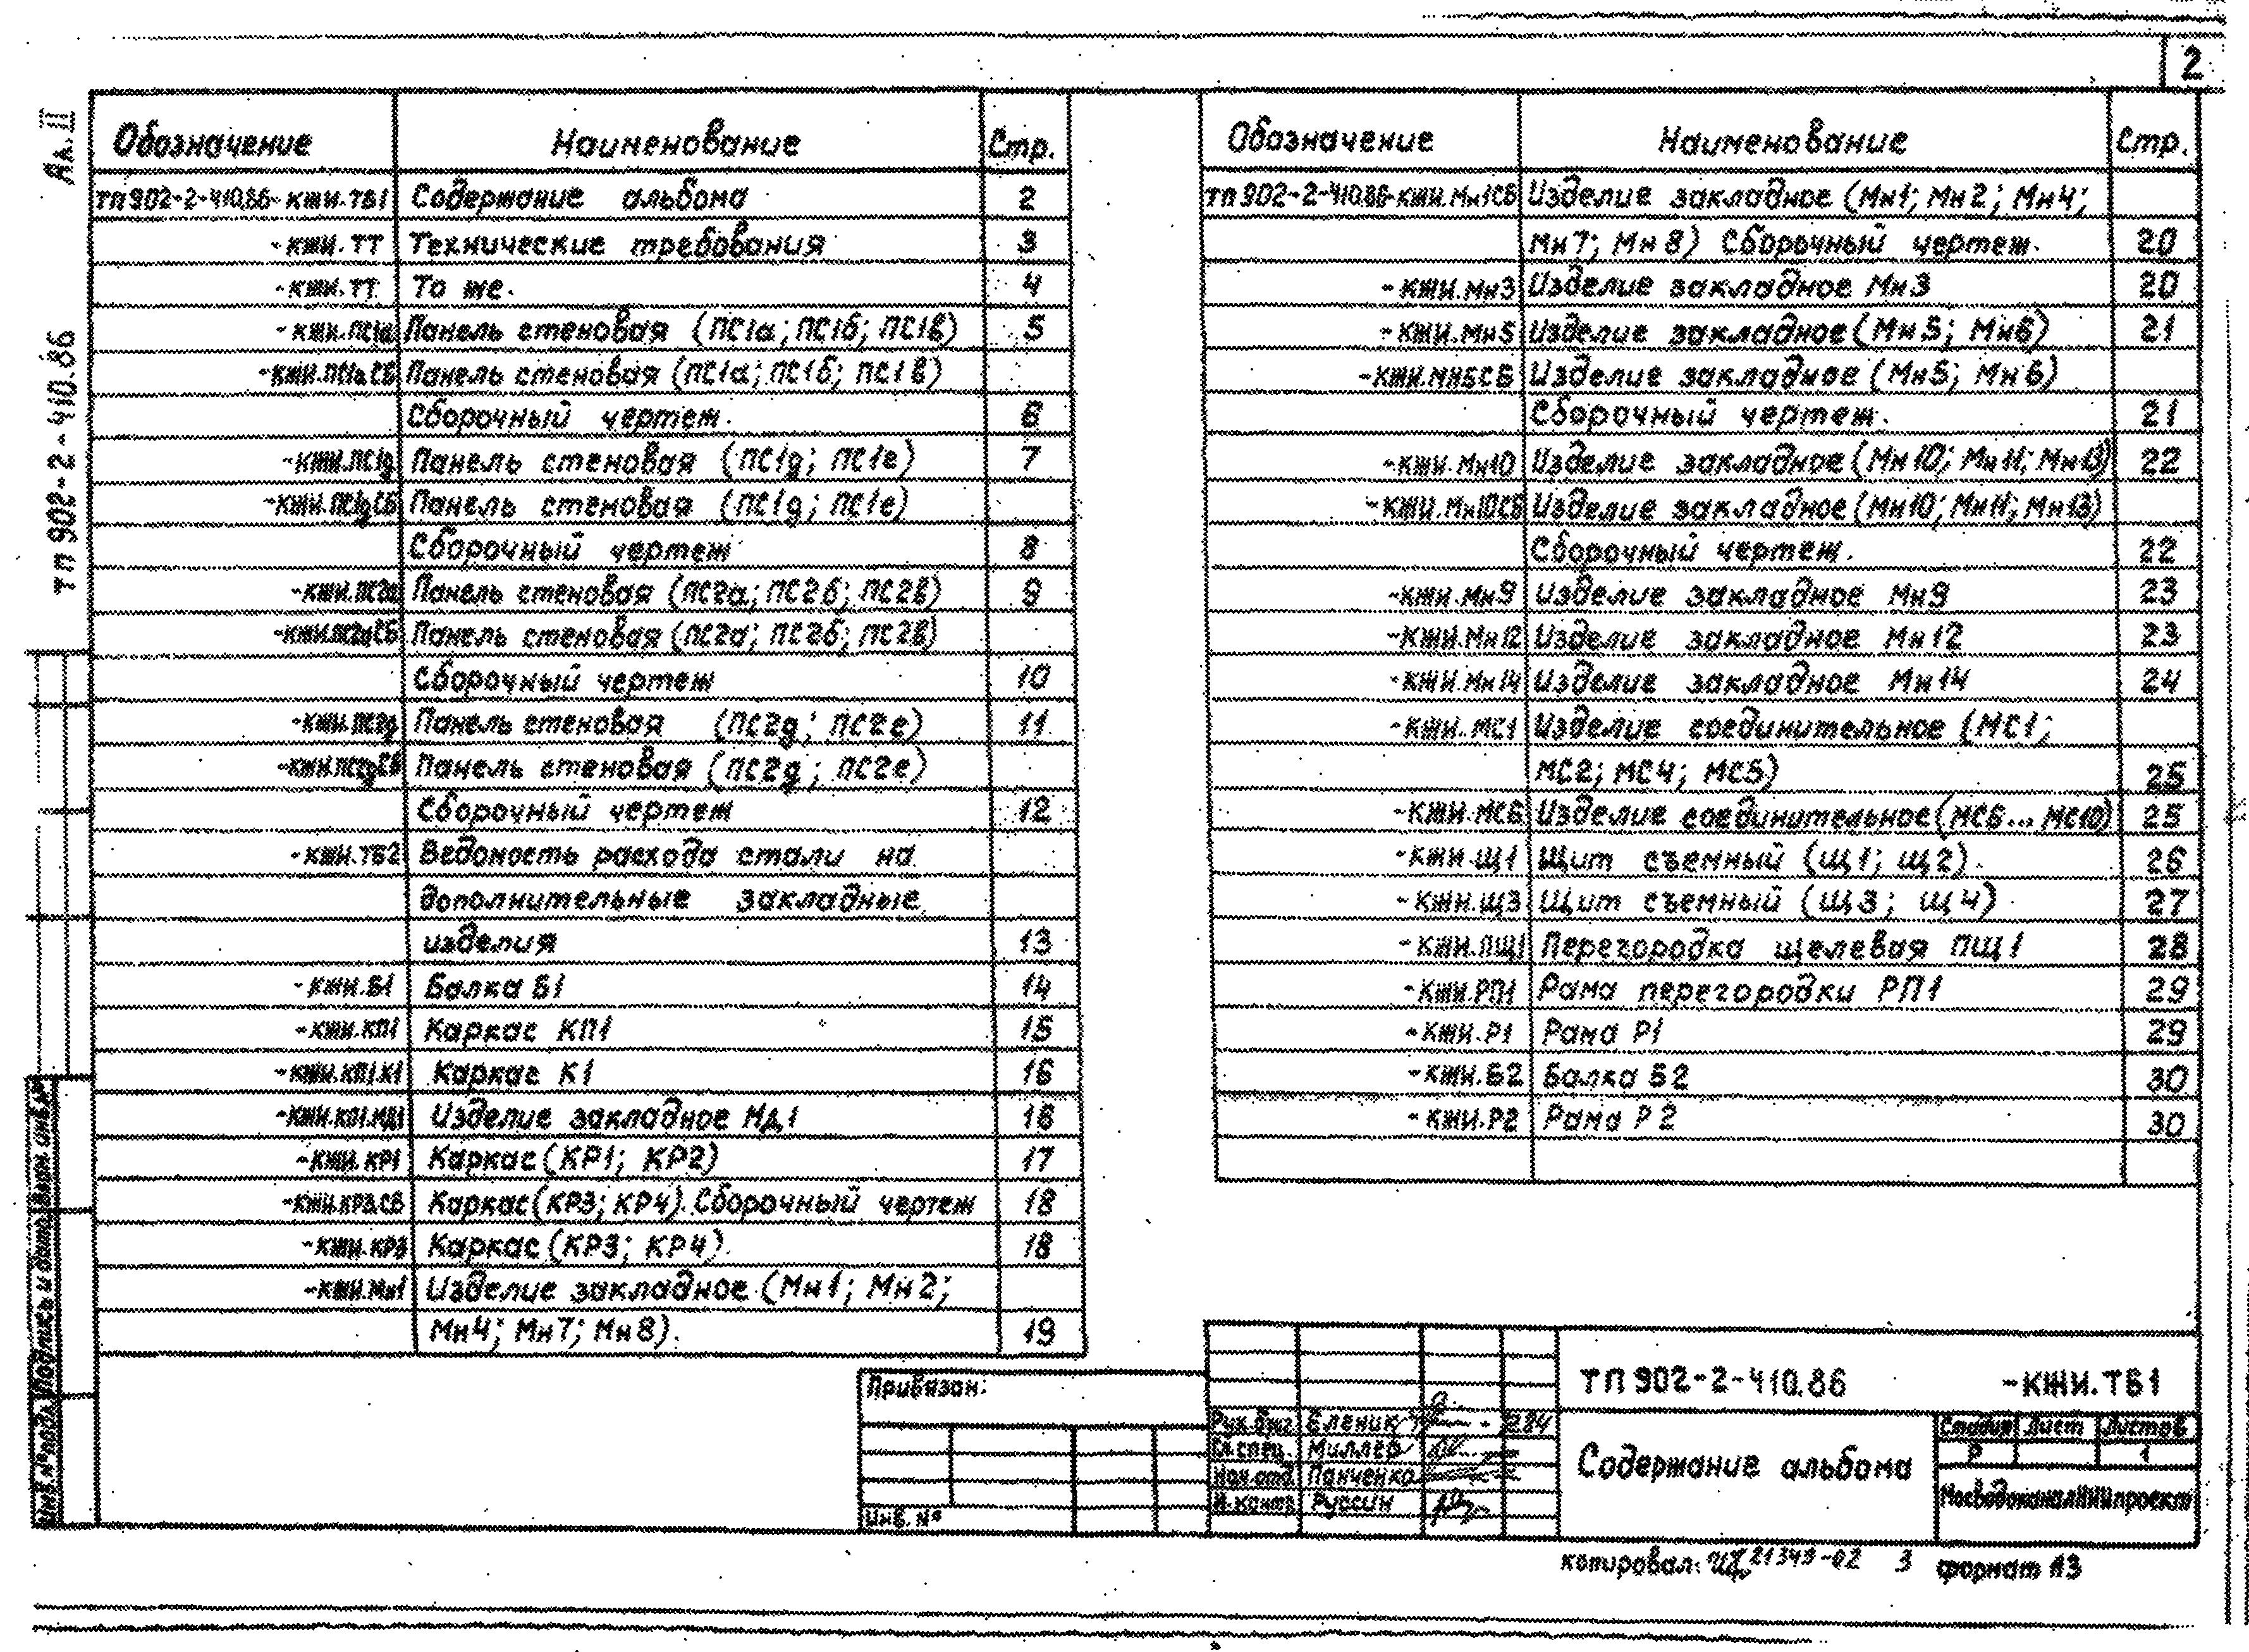 2
Ал. II
ТП 902-2-410.86
Обозначение Наименование Стр.
ТП 902-2-410.86-КЖИ.ТБ1 Содержание альбома 2
-КЖИ.ТТ Технические требования 3
-КЖИ.ТТ То же. 4
-КЖИ.ПС1а Панель стеновая (ПС1а; ПС1б; ПС1в) 5
-КЖИ.ПС1аСБ Панель стеновая (ПС1а; ПС1б; ПС1в)
Сборочный чертеж. 6
-КЖИ.ПС1g Панель стеновая (ПС1g; ПС1е) 7
-КЖИ.ПС1gСБ Панель стеновая (ПС1g; ПС1е)
Сборочный чертеж 8
-КЖИ.ПС2а Панель стеновая (ПС2а; ПС2б; ПС2в) 9
-КЖИ.ПС2аСБ Панель стеновая (ПС2а; ПС2б; ПС2в)
Сборочный чертеж 10
-КЖИ.ПС2g Панель стеновая (ПС2g; ПС2е) 11
-КЖИ.ПС2gСБ Панель стеновая (ПС2g; ПС2е)
Сборочный чертеж 12
-КЖИ.ТБ2 Ведомость расхода стали на
дополнительные закладные
изделия 13
-КЖИ.Б1 Балка Б1 14
-КЖИ.КП1 Каркас КП1 15
-КЖИ.КП1.К1 Каркас К1 16
-КЖИ.КП1.МД1 Изделие закладное МД1 16
-КЖИ.КР1 Каркас (КР1; КР2) 17
-КЖИ.КР3.СБ Каркас (КР3; КР4). Сборочный чертеж 18
-КЖИ.КР3 Каркас (КР3; КР4). 18
-КЖИ.Мн1 Изделие закладное (Мн1; Мн2;
Мн4; Мн7; Мн8). 19
Обозначение Наименование Стр.
ТП 902-2-410.86-КЖИ.Мн1СБ Изделие закладное (Мн1; Мн2; Мн4;
Мн7; Мн8) Сборочный чертеж. 20
-КЖИ.Мн3 Изделие закладное Мн3 20
-КЖИ.Мн5 Изделие закладное (Мн5; Мн6) 21
-КЖИ.Мн5СБ Изделие закладное (Мн5; Мн6)
Сборочный чертеж. 21
-КЖИ.Мн10 Изделие закладное (Мн10; Мн11; Мн13) 22
-КЖИ.Мн10СБ Изделие закладное (Мн10; Мн11; Мн13)
Сборочный чертеж. 22
-КЖИ.Мн9 Изделие закладное Мн9 23
-КЖИ.Мн12 Изделие закладное Мн12 23
-КЖИ.Мн14 Изделие закладное Мн14 24
-КЖИ.МС1 Изделие соединительное (МС1;
МС2; МС4; МС5) 25
-КЖИ.МС6 Изделие соединительное (МС6... МС10) 25
-КЖИ.Щ1 Щит съемный (Щ1; Щ2). 26
-КЖИ.Щ3 Щит съемный (Щ3; Щ4) 27
-КЖИ.ПЩ1 Перегородка щелевая ПЩ1 28
-КЖИ.РП1 Рама перегородки РП1 29
-КЖИ.Р1 Рама Р1 29
-КЖИ.Б2 Балка Б2 30
-КЖИ.Р2 Рама Р2 30
Инв.№подл. Подпись и дата Взам. инв.№
Привязан:
Инв. №
Рук.бриг. Еленик
Гл.спец. Миллер
Нач.отд. Панченко
Н.контр. Руссин
ТП 902-2-410.86 -КЖИ.ТБ1
Содержание альбома
Стадия Лист Листов
Р 1
МосводоканалНИИпроект
копировал: 21343-02 3 формат А3